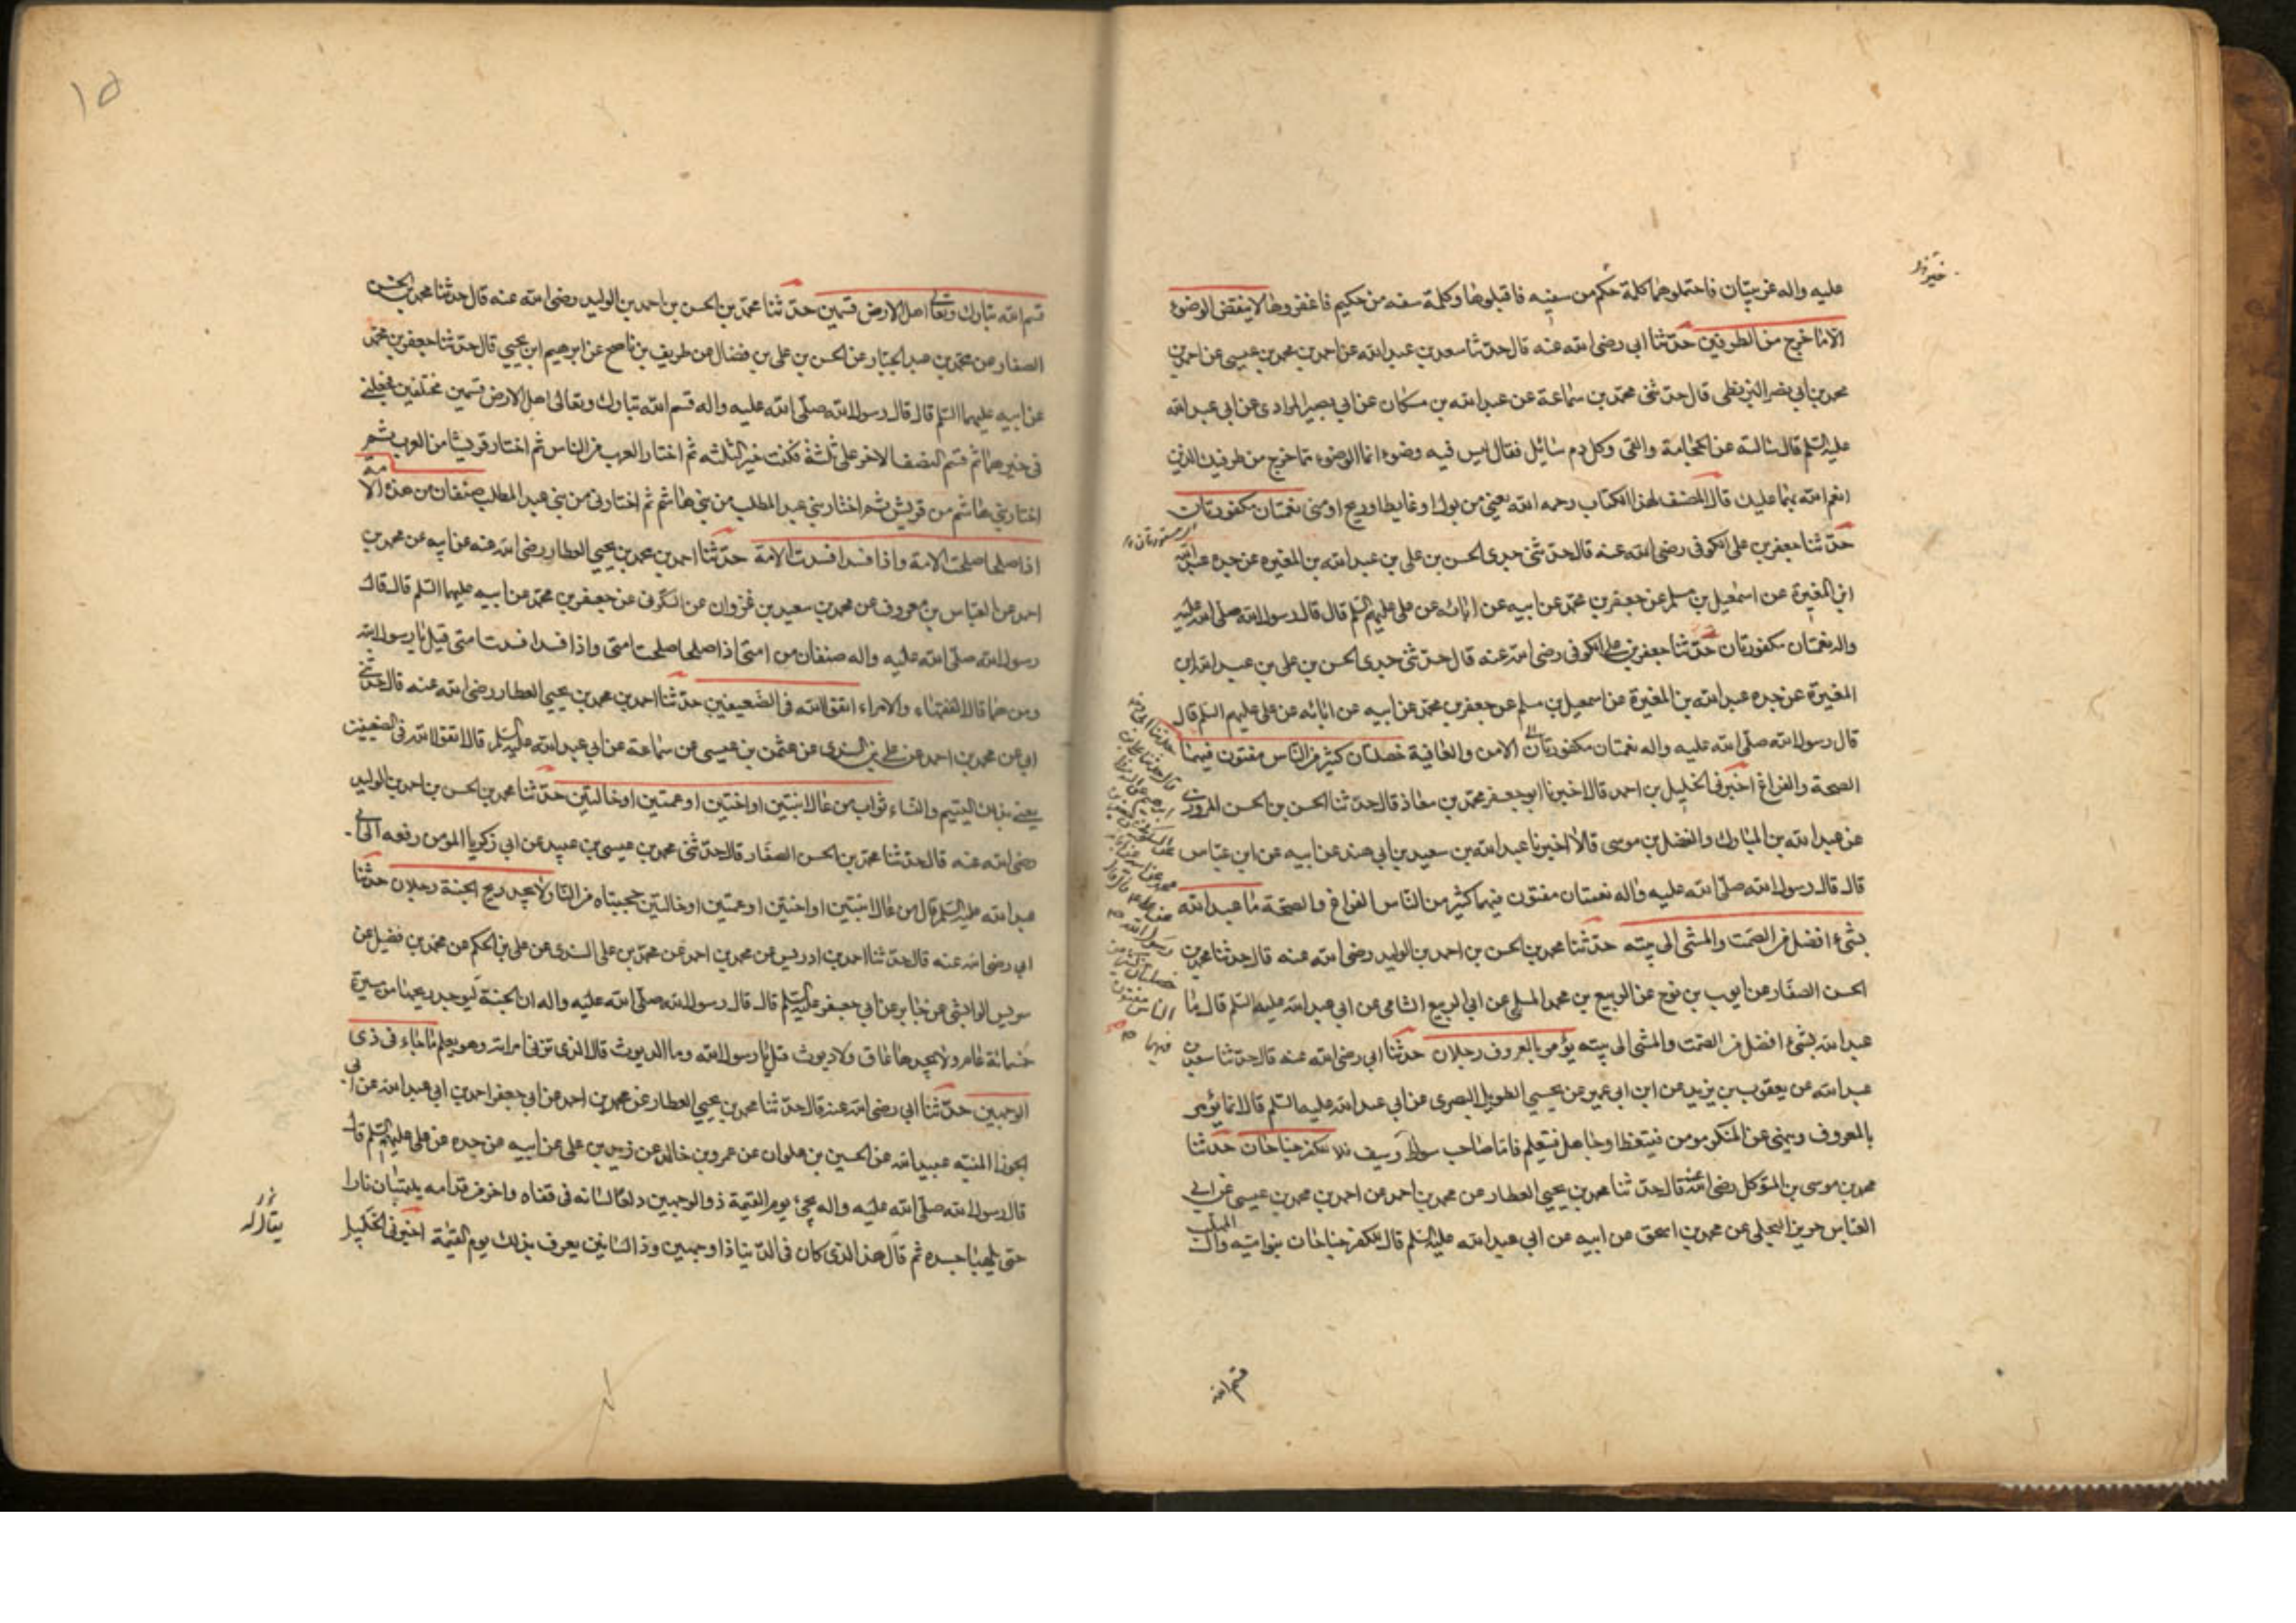 عليه واله غريبتان فاحتملوهما كلمة حكم من سفيه فاقبلوها وكلمة سفه من حكيم فاغفروها لا ينقض الوضوء
الا ما خرج من الطرفين حدثنا ابي رضى الله عنه قال حدثنا سعد بن عبد الله عن احمد بن محمد بن عيسى عن احمد بن
محمد بن ابي نصر البزنطي قال حدثنى محمد بن سماعة عن عبد الله بن مسكان عن ابي بصير المرادى عن ابي عبد الله
عليه السلم قال سالته عن الحجامة والقى وكل دم سائل فقال ليس فيه وضوء انما الوضوء مما خرج من طرفيك الذين
انعم الله بهما عليك قال المصنف لهذا الكتاب رحمه الله يعني من بول او غايط او ريح او منى نعمتان مكفورتان
حدثنا جعفر بن على الكوفى رضى الله عنه قال حدثنى جدى الحسن بن على بن عبد الله بن المغيره عن جده عبد الله
ابن المغيرة عن اسمعيل بن مسلم عن جعفر بن محمد عن ابيه عن ابائه عن على عليهم السلم قال قال رسول الله صلى الله عليه
واله نعمتان مكفورتان حدثنا جعفر بن على الكوفى رضى الله عنه قال حدثنى جدى الحسن بن على بن عبد الله ابن
المغيرة عن جده عبد الله بن المغيرة عن اسمعيل بن مسلم عن جعفر بن محمد عن ابيه عن ابائه عن على عليهم السلم قال
قال رسول الله صلى الله عليه واله نعمتان مكفورتان الامن والعافية خصلتان كثير من الناس مفتون فيهما
الصحة والفراغ اخبرنى الخليل بن احمد قال اخبرنا ابو جعفر محمد بن معاذ قال حدثنا الحسن بن الحسن المروزى
عن عبد الله بن المبارك والفضل بن موسى قالا اخبرنا عبد الله بن سعيد بن ابي هند عن ابيه عن ابن عباس
قال قال رسول الله صلى الله عليه واله نعمتان مفتون فيهما كثير من الناس الفراغ والصحة ما عبد الله
بشىء افضل من الصمت والمشى الى بيته حدثنا محمد بن الحسن بن احمد بن الوليد رضى الله عنه قال حدثنا محمد بن
الحسن الصفار عن ايوب بن نوح عن الربيع بن محمد المسلى عن ابي الربيع الشامى عن ابي عبد الله عليه السلم قال ما
عبد الله بشىء افضل من الصمت والمشى الى بيته يؤمر بالمعروف رجلان حدثنا ابي رضى الله عنه قال حدثنا سعد بن
عبد الله عن يعقوب بن يزيد عن ابن ابي عمير عن يحيى الطويل البصرى عن ابي عبد الله عليه السلم قال انما يؤمر
بالمعروف وينهى عن المنكر مومن فيتعظ او جاهل فيتعلم فاما صاحب سوط وسيف فلا تنكر جناحان حدثنا
محمد بن موسى بن المتوكل رضى الله عنه قال حدثنا محمد بن يحيى العطار عن محمد بن احمد عن احمد بن محمد بن عيسى عن ابي
العباس جرير البجلى عن محمد بن اسحق عن ابيه عن ابي عبد الله عليه السلم قال تنكر جناحان بنو اميه وال المهلب
خصلتان كثير من
الناس مفتون
فيهما
قسم الله
١٥
قسم الله تبارك وتعالى اهل الارض قسمين حدثنا محمد بن الحسن بن احمد بن الوليد رضى الله عنه قال حدثنا محمد بن الحسن
الصفار عن محمد بن عبد الجبار عن الحسن بن على بن فضال عن طريف بن ناصح عن ابرهيم ابن يحيى قال حدثنا جعفر بن محمد
عن ابيه عليهما السلم قال قال رسول الله صلى الله عليه واله قسم الله تبارك وتعالى اهل الارض قسمين مختلفين فجعلنى
فى خيرهما ثم قسم النصف الاخر على ثلثة فكنت خير الثلثه ثم اختار العرب من الناس ثم اختار قريشا من العرب ثم
اختار بني هاشم من قريش ثم اختار بني عبد المطلب من بني هاشم ثم اختارنى من بني عبد المطلب صنفان من هذه الامه
اذا صلحا صلحت الامة واذا فسدا فسدت الامة حدثنا احمد بن محمد بن يحيى العطار رضى الله عنه عن ابيه عن محمد بن
احمد عن العباس بن معروف عن محمد بن سعيد بن غزوان عن السكونى عن جعفر بن محمد عن ابيه عليهما السلم قال قال
رسول الله صلى الله عليه واله صنفان من امتى اذا صلحا صلحت امتى واذا فسدا فسدت امتى قيل يا رسول الله
ومن هما قال الفقهاء والامراء اتقوا الله فى الضعيفين حدثنا احمد بن محمد بن يحيى العطار رضى الله عنه قال حدثنى
ابي عن محمد بن احمد عن على بن السندى عن عثمن بن عيسى عن سماعة عن ابي عبد الله عليه السلم قال اتقوا الله فى الضعيفين
يعنى بذلك اليتيم والنساء ثواب من عال ابنتين او اختين او عمتين او خالتين حدثنا محمد بن الحسن بن احمد بن الوليد
رضى الله عنه قال حدثنا محمد بن الحسن الصفار قال حدثنى محمد بن عيسى بن عبيد عن ابي زكريا المومن رفعه الى ابي
عبد الله عليه السلم قال من عال ابنتين او اختين او عمتين او خالتين حجبتاه من النار ولا يجد ريح الجنة رجلان حدثنا
ابي رضى الله عنه قال حدثنا احمد بن ادريس عن محمد بن احمد عن محمد بن على السندى عن على بن الحكم عن محمد بن فضيل عن
سويس الوابشى عن جابر عن ابي جعفر عليه السلم قال قال رسول الله صلى الله عليه واله ان الجنة ليوجد ريحها من مسيرة
خمسمائة عام ولا يجدها عاق ولا ديوث قيل يا رسول الله وما الديوث قال الذى تزنى امراته وهو يعلم ما جاء فى ذى
الوجهين حدثنا ابي رضى الله عنه قال حدثنا محمد بن يحيى العطار عن محمد بن احمد عن ابي جعفر احمد بن ابي عبد الله عن ابي
الجوزا المنبه عبيد الله عن الحسين بن علوان عن عمرو بن خالد عن زيد بن على عن ابيه عن جده عن على عليهم السلم قال
قال رسول الله صلى الله عليه واله يجىء يوم القيمة ذو الوجهين دالعا لسانه فى قفاه واخر من قدامه يلتهبان نارا
حتى يلهبا جسده ثم قال هذا الذى كان فى الدنيا ذا وجهين وذا لسانين يعرف بذلك يوم القيمة اخبرنى الخليل